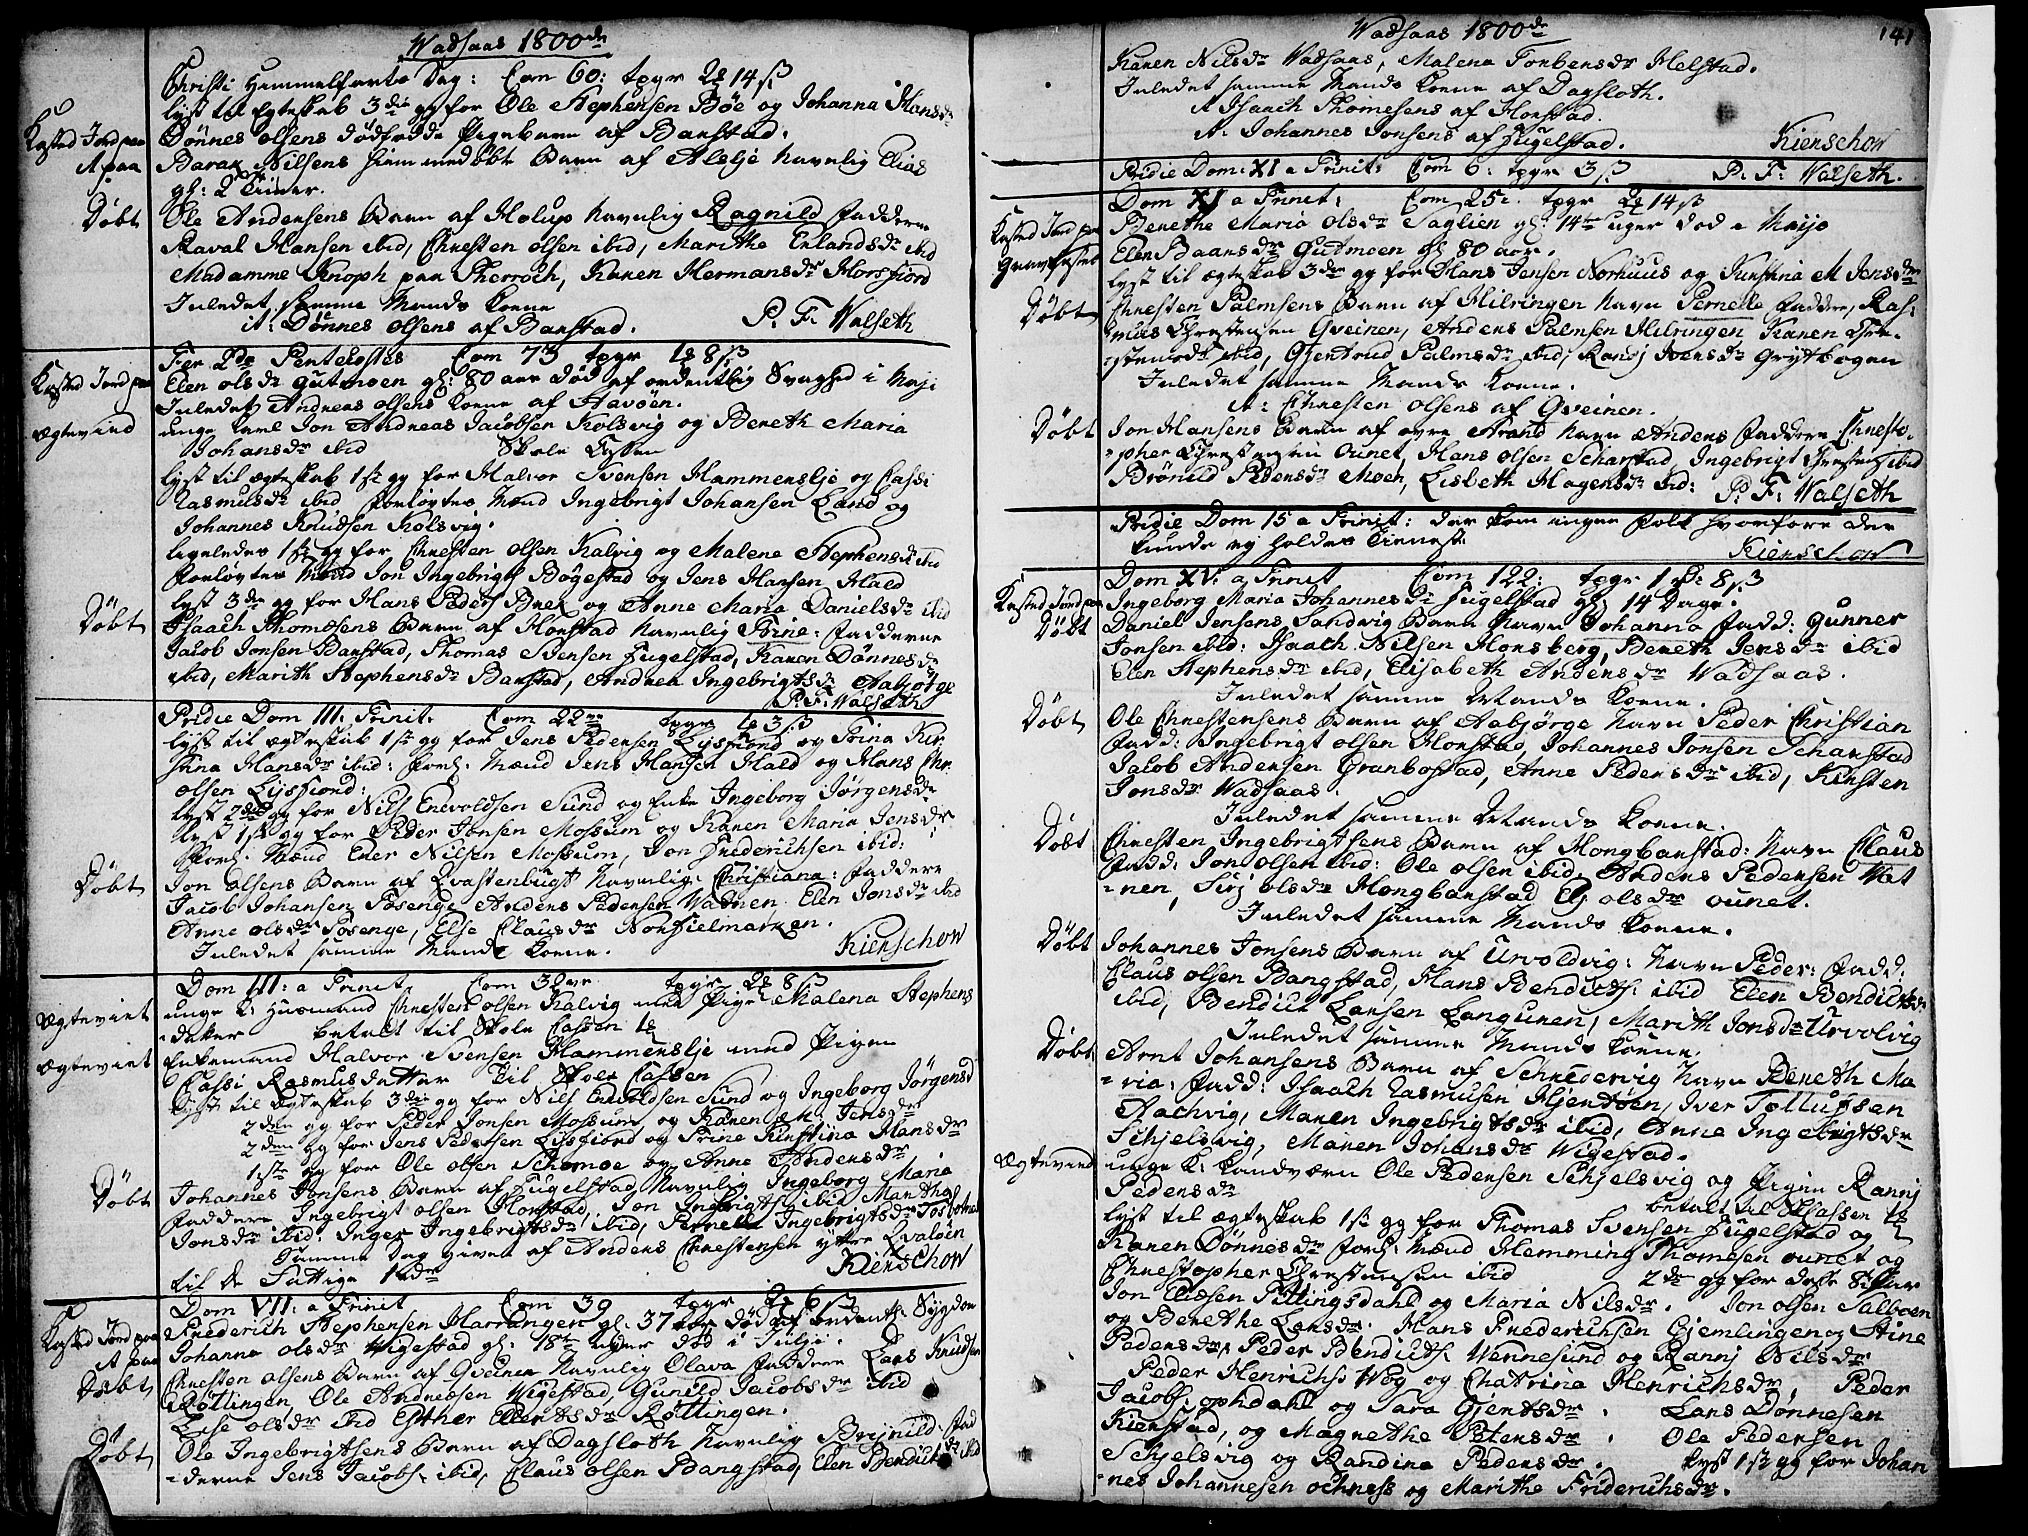 Wadsaas 1800de
Christi Himmelfarts Dag: Com 60: tpgr 2 14 ß
lyst til Egteskab 3die gg for Ole Stephensen Bøe og Johanna Hansdr
Kasted Jord paa Dønnes olsens dødfødde Pigebarn af Banstad.
Barak Nilsens hiemmedøbt Barn af Alslje Navnlig Elias
gl: 2 Timer.
Døbt Ole Andersens Barn af Holup Navnlig Ragnild Faddere
Hansen ibid, Christen olsen ibid, Marithe Erlandsdr ibid
Madamme Knoph paa Therroch, Karen Hermansdr Horsfiord
Inledet samme Mands Kone
it: Dønnes olsens af Banstad. P. F. Walseth
Fer 2da Pentekostes Com 73 tpgr 1 8 ß
Kasted Jord paa Elen olsdr gutmoen gl: 80 aar død af ordentlig Svaghed i Maji
Inledet Andreas olsens Kone af Havøen.
Egteviid unge Karl Jon Andreas Jacobsen Kolsvig og Bereth Maria
Johansdr ibid Skole Cassen
lyst til Egteskab 1ste gg for Halvor Svensen Hammenslje og Cassi
Rasmusdr ibid Forløvtes Mænd Ingebrigt Johansen Land og
Johannes Knudsen Kolsvig.
Ligeledes 1ste gg for Christen olsen Kalvig og Malene Stephensdr ibid
Forløvtes Mænd Jon Ingebrigts Bøgestad og Jens Hansen Hald
lyst 3de gg for Hans Peders Brek og Anne Maria Danielsdr ibid
Døbt Isaach Thomesens Barn af Horstad Navnlig Trine: Fadderne
Jacob Jonsen Banstad, Thomas Svensen Fugelstad, Karen Dønnesdr
ibid, Marith Stephensdr Banstad, Andrea Ingebrigtsdr Aabjørge
P. F. Walseth
Pridie Dom III: Trinit: Com 22 tpgr 1 3 ß
lyst til Egteskab 1ste gg for Jens Pedersen Lysfiord og Trina Kir
stina Hansdr ibid: Forl: Mænd Jens Hansen Hald og Hans Chr
olsen Lysfiord:
lyst 2den gg for Nils Enevoldsen Sund og Enke Ingeborg Jørgensdr
lyst 1ste gg for Peder Jonsen Mossum og Karen Maria Jensdr
Forl: Mænd Ener Nilsen Mossum, Jon Frederichsen ibid:
Døbt Jon olsens Barn af Qvastenbugt Navnlig: Christiana: Faddere
Jacob Johansen Posenge, Anders Pedersen Watnen. Elen Jonsdr ibid
Anne olsdr Posenge, Else Clausdr Norfielmarken.
Inledet samme Mands Kone. Kierschow
Dom III: a Trinit. Com 32 tpgr 2 8 ß
Egteviet unge K: Husmand Christen olsen Kalvig med Pige Malena Stephens
datter betalt til Skole Cassen 1
Egteviet Enkemand Halvor Svensen Hammenslje med Pigen
Cassi Rasmusdatter til Skole Cassen
lyst til Egteskab 3die gg for Nils Enevoldsen Sund og Ingeborg Jørgensd
2den gg for Peder Jonsen Mossum og Karen M: Jensdr
2den gg for Jens Pedersen Lysfiord og Trine Kirstina Hansdr
1ste gg for Ole olsen Schomoe og Anne Andersdr
Døbt Johannes Jonsens Barn af Fugelstad Navnlig Ingeborg Maria
Faddere Ingebrigt olsen Horstad, Jon Ingebrigts ibid Martha
Jonsdr ibid. Inger Ingebrigtsdr ibid, Pernelle Ingebrigtsdr
Samme Dag given af Anders Christensen yttre Qvaløen
til de Fattige 1 Kierschow
Dom VII: a Trinit Com 39 tpgr 2 6 ß
Kasted Jord paa Friderich Stephensen Harranger gl: 37 aar død af ordentl: Sygdom
Johanna olsdr Wigestad gl: 18 uger død i Julji.
Døbt Christen olsens Barn af Gveinen Navnlig Olava Faddere Lars Knudsen
Røttingen, Ole Andersen Wigestad, Gunild Jacobsdr ibid
Lise olsdr ibid Esther Elertsdr Røttingen.
Døbt Ole Ingebrigtsens Barn af Dagsloth Navnlig Brynild: Fad
derne Jens Jacobs: ibid, Claus olsen Bangstad, Elen Bendictsdr ibid
Wadsaas 1800de 141
Karen Nilsdr Wadsaas, Malena Torbensdr Helstad.
Inledet samme Mands Kone af Dagsloth.
it Isaach Thomesens af Horstad.
it: Johannes Jonsens af Fugelstad. Kierschow
Pridie Dom: XI a Trinit: Com 6: tpgr 3 ß P. F. Walseth.
Dom XI a Trinit: Com 25. tpgr 2 14 ß
Kasted Jord paa Berethe Maria olsdr Saglien gl: 14 uger død i Majo
Gravfæstet Elen Baansdr Gutmoen gl 80 aar.
lyst til Egteskab 3de gg for Hans Jensen Norhuus og Kirstina M Jensdr
Døbt Christen Palmsens Barn af Hilringen Navn Pernelle Faddere, Ras:
mus Christensen Gveinen, Anders Palmsen Hilringen, Karen Chri:
stensdr ibid, Gjertrud Palmsdr ibid, Ranj Iversdr Grytbogen
Inledet samme Mands Kone.
it: Christen olsens af Gveinen.
Døbt Jon Hansens Barn af øvre Arand Navn Anders Faddere Christo:
pher Christensen Ounet, Hans olsen Scharstad, Ingebrigt Christens ibid
Brønild Pedersdr Moen, Lisbeth Hagensdr ibid: P: F: Walseth
Pridie Dom 15 a Trinit: der kom ingen Folk hvorfore der
kunde ej holdes Tieneste Kierschow
Dom XV: a Trinit Com 122: tpgr 1 rd: 8 ß
Kasted Jord paa Ingeborg Maria Johannesdr Fugelstad gl: 14 Dage.
Døbt Daniel Jensens Sandvig Barn Navn Johanna Fadd: Gunner
Jonsen ibid: Isaach Nilsen Horsberg, Bereth Jensdr ibid
Elen Stephensdr ibid, Elisabeth Andersdr Wadsaas.
Inledet samme Mands Kone.
Døbt Ole Christensens Barn af Aabjørge Navn Peder Christian
Fadd: Ingebrigt olsen Horstad, Johannes Jonsen Scharstad
Jacob Andersen Granbostad, Anne Pedersdr ibid, Kirsten
Jonsdr Wadsaas.
Inledet samme Mands Kone.
Døbt Christen Ingebrigtsens Barn af Hongbarstad: Navn Claus
Fadd: Jon olsen ibid: Ole olsen ibid, Anders Pedersen Wat
nen, Sirj olsdr Hongbarstad, Elj olsdr Ounet.
Inledet samme Mands Kone.
Døbt Johannes Jonsens Barn af Urvoldvig: Navn Peder: Fadd:
Claus olsen Bangstad, Hans Bendicts: ibid Elen Bendictsdr
ibid, Bendict Larsen Langunen, Marith Jonsdr Urvolvig
Inledet samme Mands Kone.
Døbt Arnt Johansens Barn af Schredervig Navn Bereth Ma
ria: Fadd: Isaach Rasmusen Hjertøen, Iver Tollufsen
Aachvig, Maren Ingebrigtsdr ibid, Anne Ingebrigtsdr
Schjelsvig, Maren Johansdr Wigestad.
Egteviid unge K: Landværn Ole Pedersen Schjelsvig og Pigen Rannj
Pedersdr betalt til Skolcassen 1
lyst til Egteskab 1ste gg for Thomas Svensen Fugelstad og
Karen Dønnesdr Forl: Mænd Hemming Thomesen Ounet og
Christopher Christensen ibid 2de gg for
Jon Eliesen Tillingsdahl og Maria Nilsdr. Jon olsen Salboen
og Berethe Larsdr. Hans Friderichsen Gjemlingen og Stine
Pedersdr, Peder Bendicts: Wennesund og Rannj Nilsdr
Peder Henrichs: Wog og Chatrina Henrichsdr, Peder
Jacobs: ophdahl og Sara Gjertsdr. Lars Dønnesen
Kierstad, og Magrethe Petersdr. Ole Pedersen
Schjelsvig og Randina Pedersdr. lyst 1ste gg for Johan
nes Johannesen ochness og Marithe Friderichsdr.